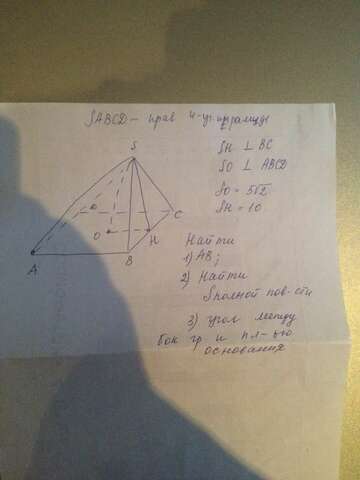 SABCD – прав 4-уг. пирамида
SH ⊥ BC
SO ⊥ ABCD
SO = 5√2
SH = 10
S
D
C
O
H
A
B
Найти
1) AB;
2) Найти
Sполной пов-сти
3) угол между
бок гр и пл-ью
основания